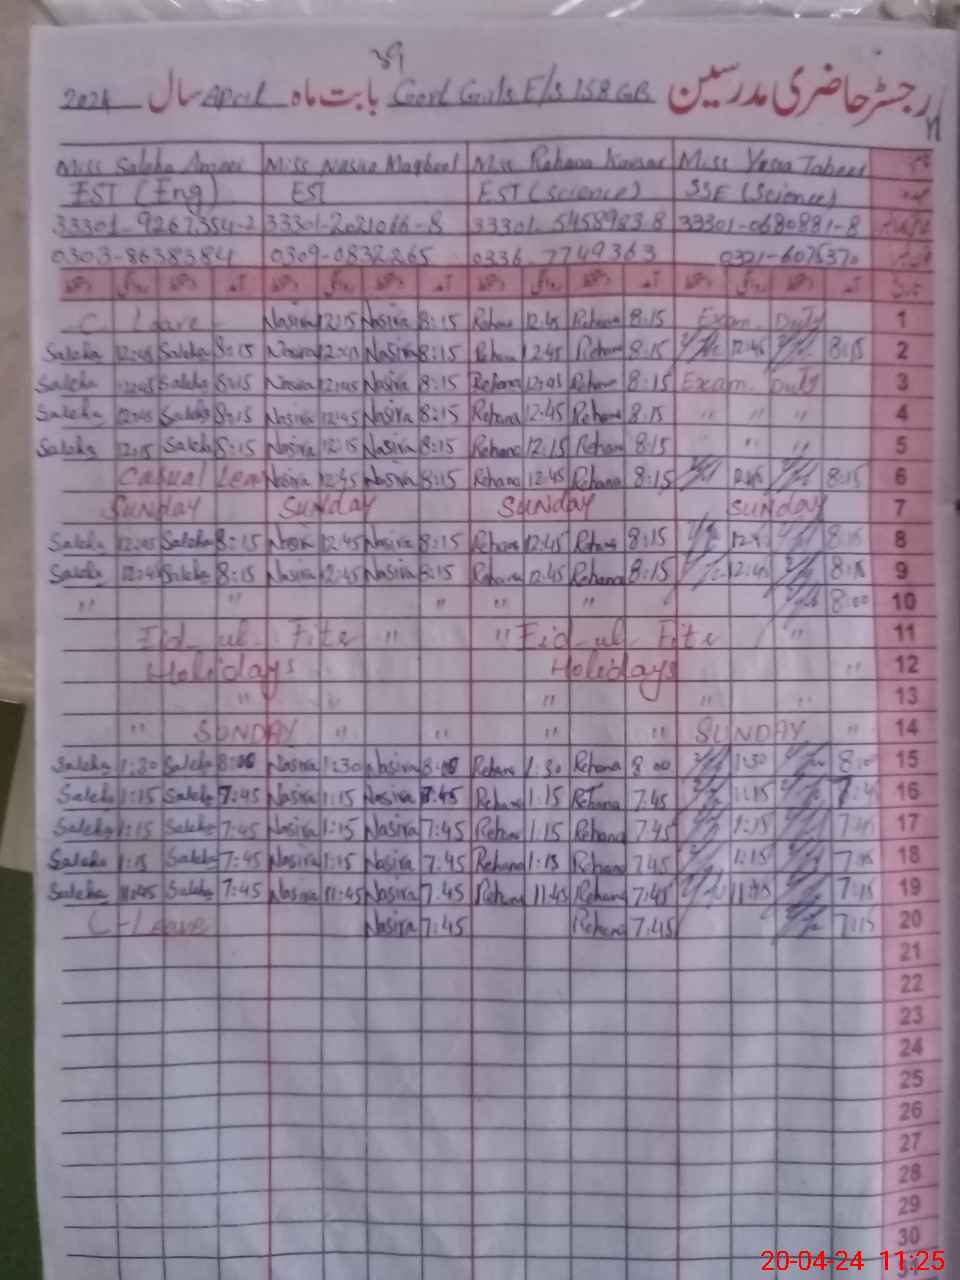 39
رجسٹر حاضری مدرسین Govt Girls E/S 158 GB بابت ماہ April سال 2024
Miss Saleha Miss Nasira Maqbool Miss Rehana Kausar Miss
EST (Eng) EST EST (Science) SSE (Science)
33301-9267354-2 33301-2021066-8 33301-5458983-8 33301-0680881-8
0303-8638384 0309-0832265 0336 7749363 0321-6075370
C Leave Nasira 12:15 Nasira 8:15 Rehana 12:45 Rehana 8:15 Exam. Duty 1
Saleha 12:45 Saleha 8:15 Nasira Nasira 8:15 Rehana 12:45 Rehana 8:15 12:45 8:15 2
Saleha 12:45 Saleha 8:15 Nasira 12:45 Nasira 8:15 Rehana 12:45 Rehana 8:15 Exam. Duty 3
Saleha 12:45 Saleha 8:15 Nasira 12:45 Nasira 8:15 Rehana 12:45 Rehana 8:15 " " " 4
Saleha 12:15 Saleha 8:15 Nasira 12:15 Nasira 8:15 Rehana 12:15 Rehana 8:15 " " " 5
Casual Leave Nasira 12:45 Nasira 8:15 Rehana 12:45 Rehana 8:15 12:45 8:15 6
Sunday Sunday Sunday Sunday 7
Saleha 12:45 Saleha 8:15 Nasira 12:45 Nasira 8:15 Rehana 12:45 Rehana 8:15 12:45 8:15 8
Saleha 12:45 Saleha 8:15 Nasira 12:45 Nasira 8:15 Rehana 12:45 Rehana 8:15 12:45 8:15 9
" " " " " 8:00 10
Eid-ul-Fitr " " Eid-ul-Fitr " 11
Holidays Holidays " 12
" " " " 13
" SUNDAY " " " " SUNDAY " 14
Saleha 1:30 Saleha 8:00 Nasira 1:30 Nasira 8:00 Rehana 1:30 Rehana 8 00 1:30 8:00 15
Saleha 1:15 Saleha 7:45 Nasira 1:15 Nasira 7:45 Rehana 1:15 Rehana 7:45 1:15 16
Saleha 1:15 Saleha 7:45 Nasira 1:15 Nasira 7:45 Rehana 1:15 Rehana 7:45 1:15 17
Saleha 1:15 Saleha 7:45 Nasira 1:15 Nasira 7:45 Rehana 1:15 Rehana 7 45 1:15 18
Saleha 11:45 Saleha 7:45 Nasira 11:45 Nasira 7:45 Rehana 11:45 Rehana 7:45 7:15 19
C-Leave Nasira 7:45 Rehana 7:45 7:15 20
21
22
23
24
25
26
27
28
29
30
20-04-24 11:25